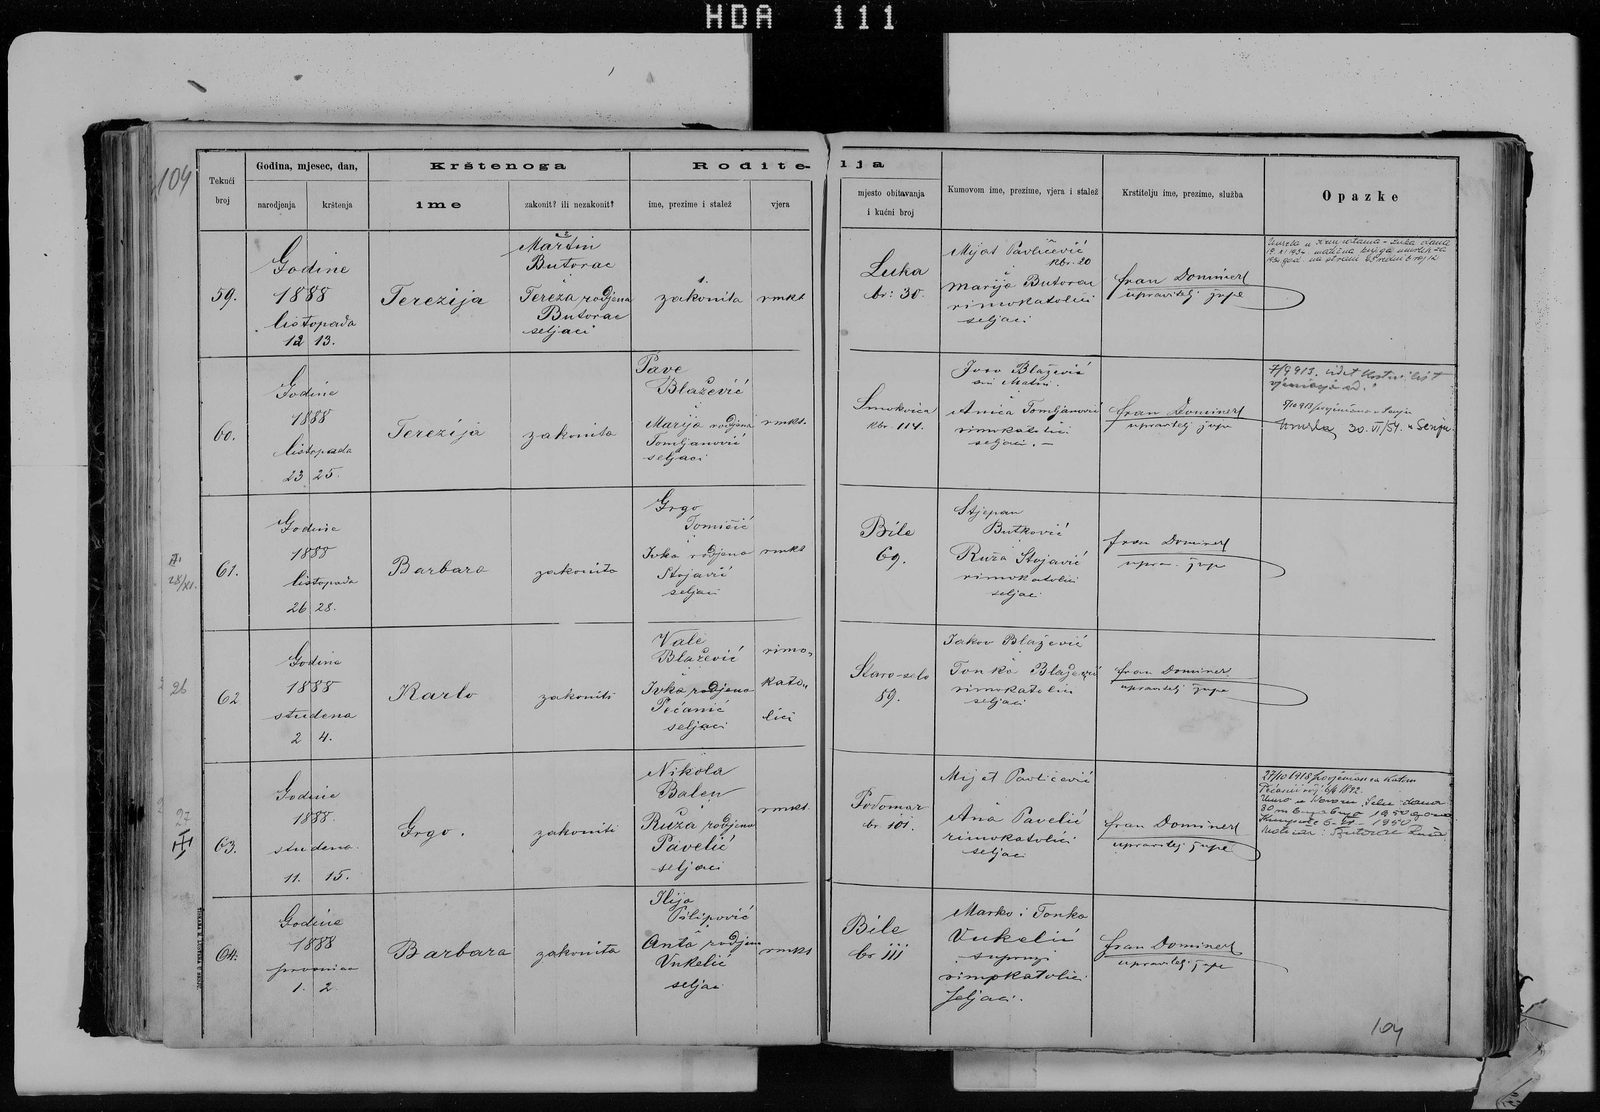 HDA 111
104
Tekući broj
Godina, mjesec, dan,
narodjenja
krštenja
Krštenoga
ime
zakonit? ili nezakonit?
Rodite-
ime, prezime i stalež
vjera
lja
mjesto obitavanja
i kućni broj
Kumovom ime, prezime, vjera i stalež
Krstitelju ime, prezime, služba
Opazke
59.
Godine
1888
listopada
12 13.
Terezija
Martin
Butorac
Tereza rodjena
Butorac
seljaci
zakonita
rmkt
Luka
br: 30.
Mijat Pavličević
kbr. 20
Marija Butorac
rimokatolici
seljaci
fran Dominert
upravitelj župe
60.
Godine
1888
listopada
23 25.
Terezija
zakonita
Pave
Blažević
Marija rodjena
Tomljanović
seljaci
rmkt.
Smokvica
kbr. 114.
Joso Blažević
sin Matin
Anića Tomljanović
rimokatolici
seljaci. –
fran Dominert
upravitelj župe
Umrla 30. VI/54. u Senju.
61.
Godine
1888
listopada
26 28.
Barbara
zakonita
Grgo
Tomičić
Ivka rodjena
Stojavić
seljaci
rmkt
Bile
69.
Stjepan
Butković
Ruža Stojavić
rimokatolici
seljaci
fran Dominert
uprav. župe
28/XI.
62
Godine
1888
studena
2 4.
Karlo
zakoniti
Vale
Blažević
Ivka rodjena
Pećanić
seljaci
rimo-
kato-
lici
Staro-selo
89.
Jakov Blažević
Tonka Blažević
rimokatolici
seljaci
fran Dominert
upravitelj župe
26
63.
Godine
1888.
studena
11. 15.
Grgo.
zakoniti
Nikola
Balen
Ruža rodjena
Pavelić
seljaci
rmkt
Podomar
br 101.
Mijat Pavličević
Ana Pavelić
rimokatolici
seljaci
fran Dominert
upravitelj župe
27
64.
Godine
1888
prosinca
1. 2.
Barbara
zakonita
Ilija
Filipović
Anta rodjena
Vukelić
seljaci
rmkt
Bile
br 111
Marko i Tonka
Vukelić
supruzi
rimokatolici
seljaci.
fran Dominert
upravitelj župe
104